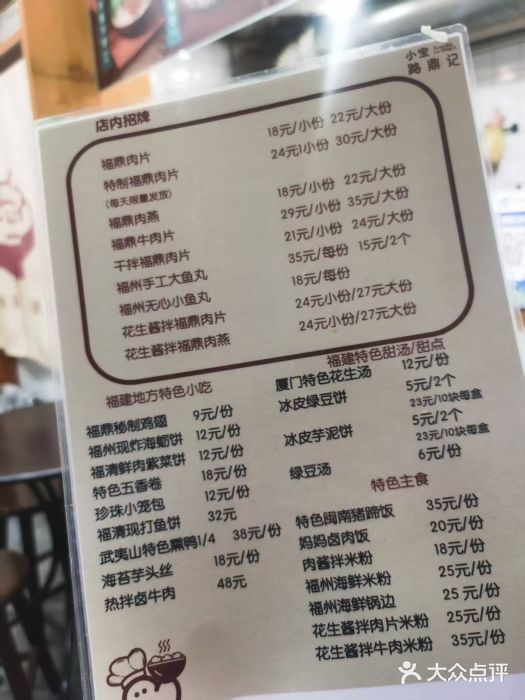 小宝
路鼎记
店内招牌
福鼎肉片 18元/小份 22元/大份
特制福鼎肉片 24元/小份 30元/大份
(每天限量发放)
福鼎肉燕 18元/小份 22元/大份
福鼎牛肉片 29元/小份 35元/大份
干拌福鼎肉片 21元/小份 24元/大份
福州手工大鱼丸 35元/每份 15元/2个
福州无心小鱼丸 18元/每份
花生酱拌福鼎肉片 24元小份/27元大份
花生酱拌福鼎肉燕 24元小份/27元大份
福建地方特色小吃
福鼎秘制鸡翅 9元/份
福州现炸海蛎饼 12元/份
福清鲜肉紫菜饼 12元/份
特色五香卷 18元/份
珍珠小笼包 12元/份
福清现打鱼饼 32元
武夷山特色熏鸭1/4 38元/份
海苔芋头丝 18元/份
热拌卤牛肉 48元
福建特色甜汤/甜点
厦门特色花生汤 12元/份
冰皮绿豆饼 5元/2个
23元/10块每盒
冰皮芋泥饼 5元/2个
23元/10块每盒
绿豆汤 6元/份
特色主食
特色闽南猪蹄饭 35元/份
妈妈卤肉饭 20元/份
肉酱拌米粉 18元/份
福州海鲜米粉 25元/份
福州海鲜锅边 25元/份
花生酱拌肉片米粉 25元/份
花生酱拌牛肉米粉 35元/份
大众点评